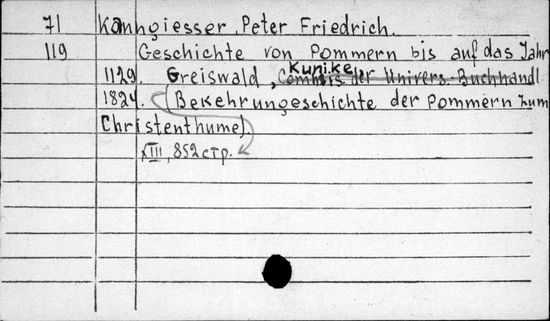 71 Kanngiesser, Peter Friedrich.
119 Geschichte von Pommern bis auf das Jahr
Kunike,
1129. Greiswald, Commis der Univers-Buchhandl
1824. (Bekehrungeschichte der Pommern zum
Christenthume).
XIII, 852 стр.